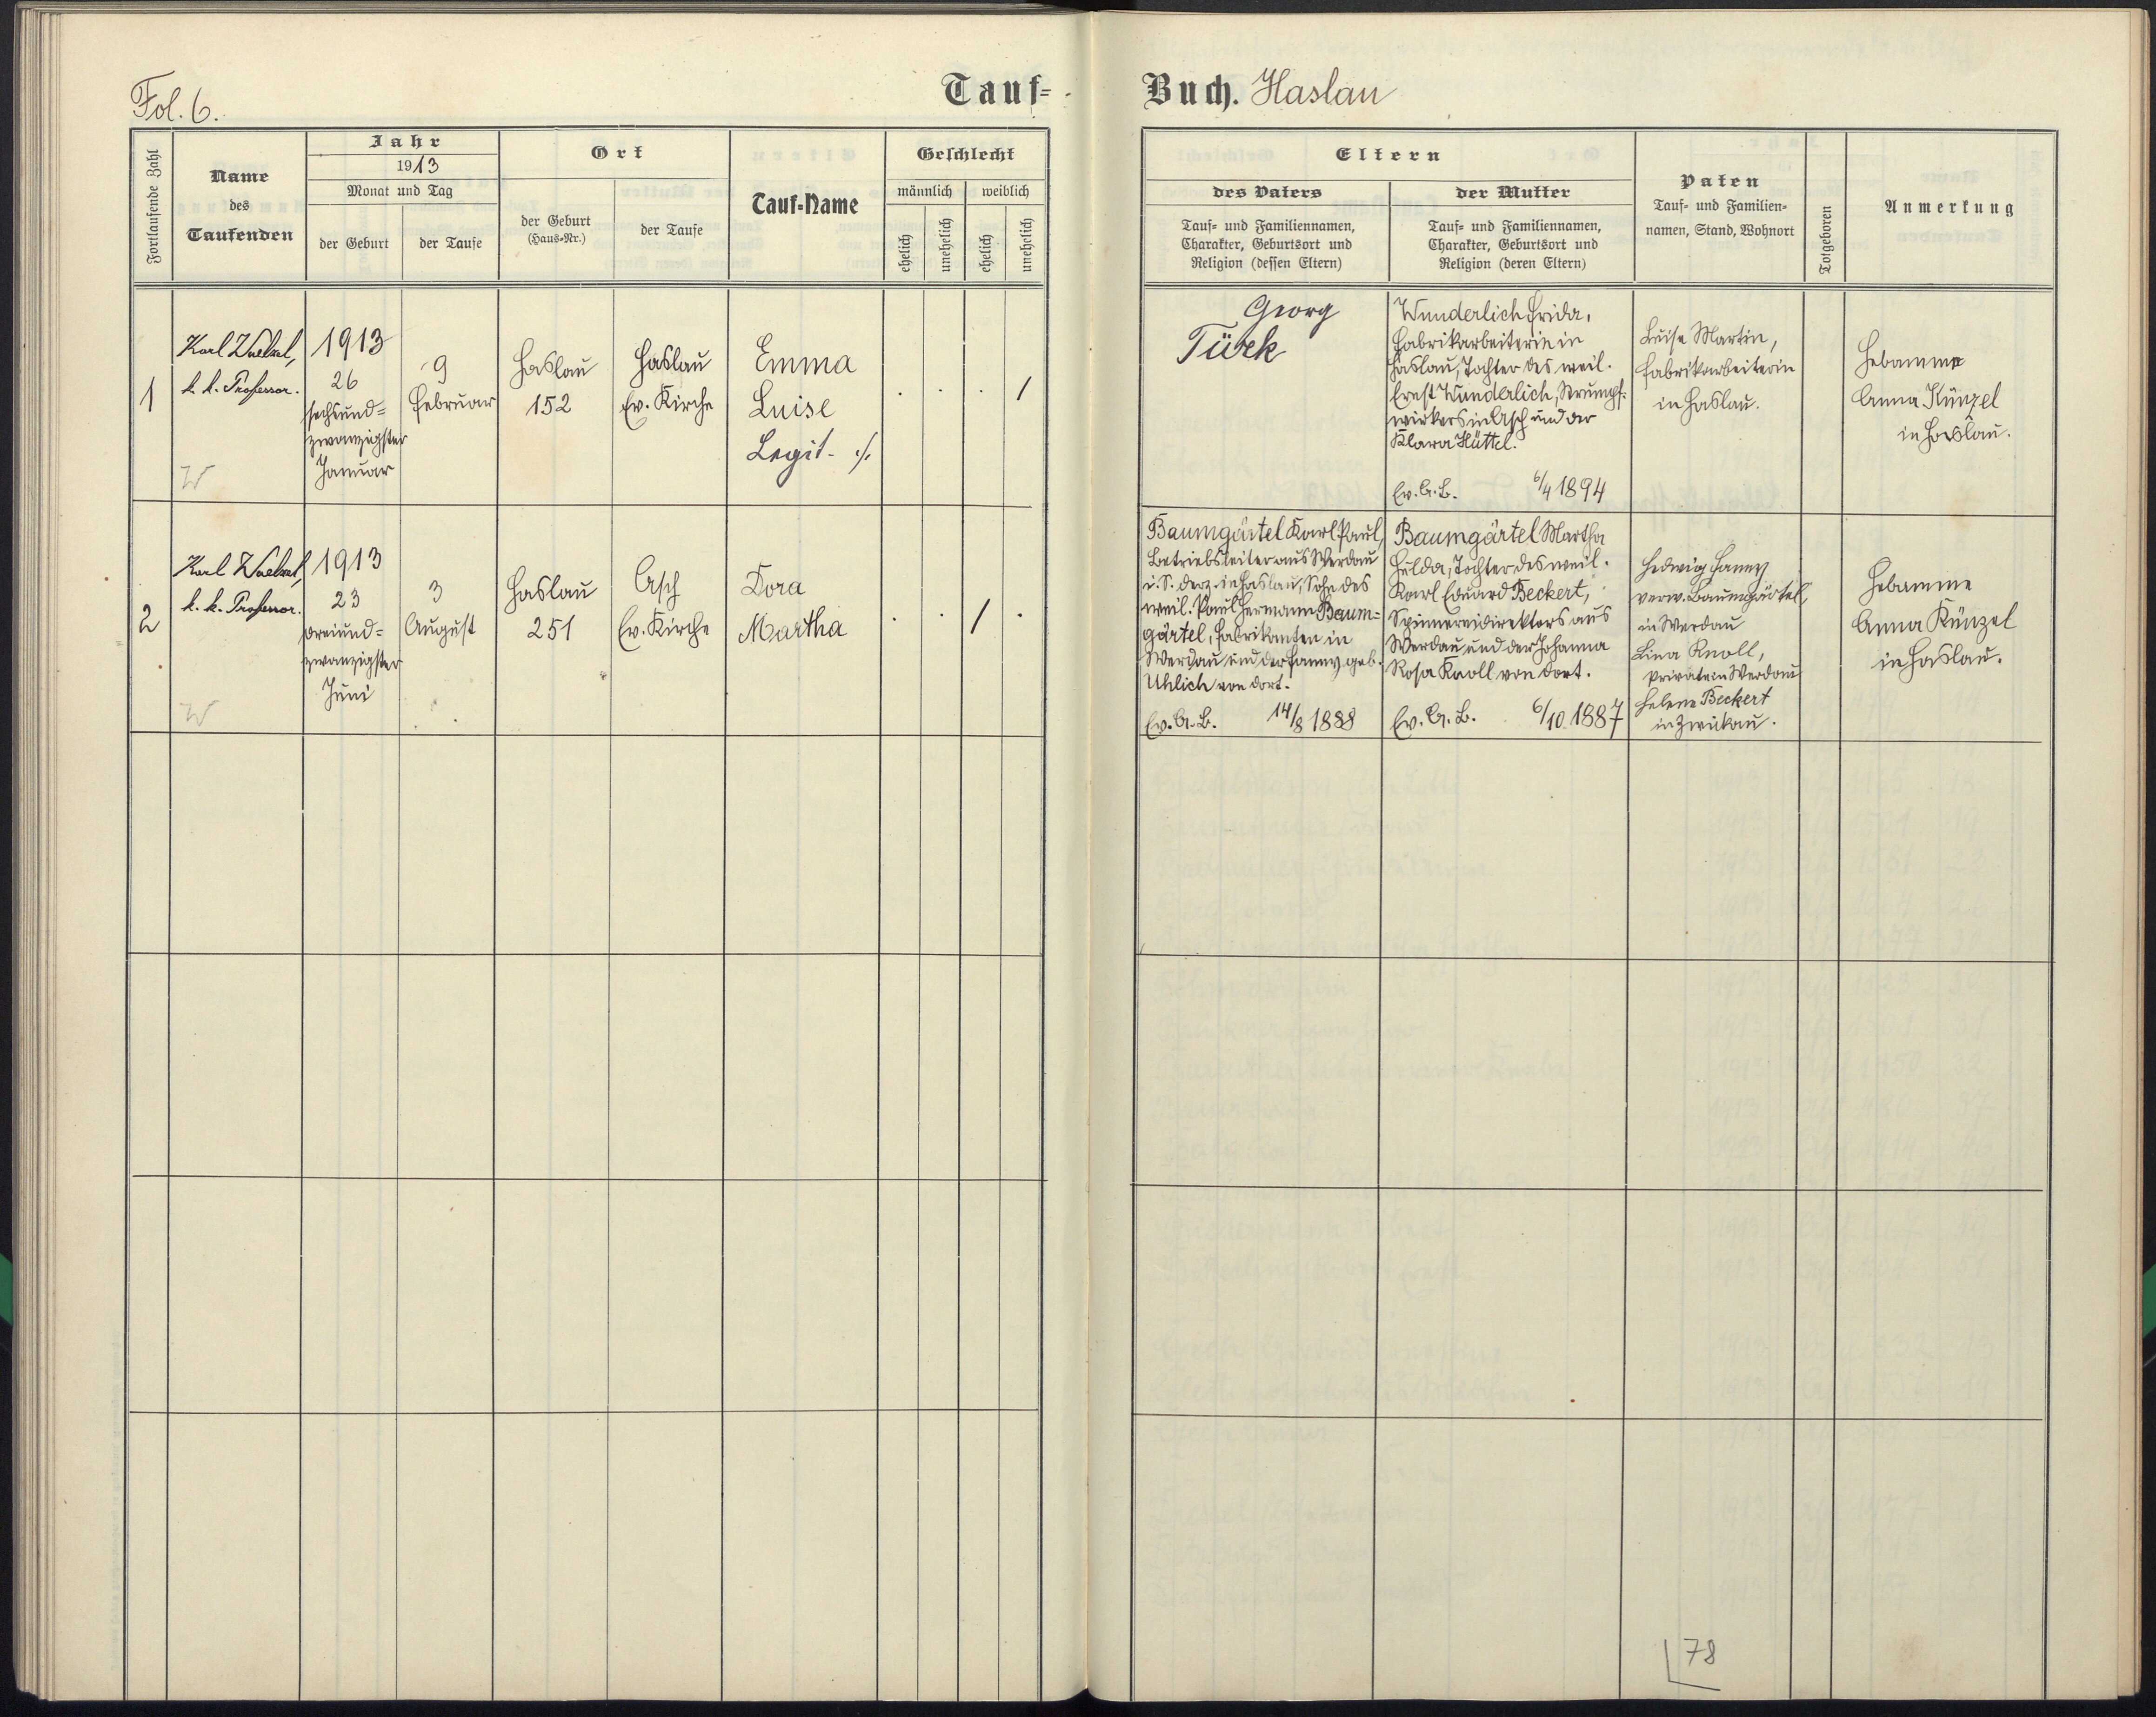 Fol. 6.
Tauf-
Buch. Haslau
Fortlaufende Zahl
Name
des
Taufenden
Jahr
1913
Monat und Tag
der Geburt
der Taufe
Ort
der Geburt
(Haus-Nr.)
der Taufe
Tauf-Name
Geschlecht
männlich
weiblich
ehelich
unehelich
ehelich
unehelich
Eltern
des Vaters
Tauf- und Familiennamen,
Charakter, Geburtsort und
Religion (dessen Eltern)
der Mutter
Tauf- und Familiennamen,
Charakter, Geburtsort und
Religion (deren Eltern)
Paten
Tauf- und Familien-
namen, Stand, Wohnort
Totgeboren
Anmerkung
1
Karl
k. k. Professor.
W
1913
26
sechsund-
zwanzigster
Januar
9
Februar
Haslau
152
Haslau
Ev. Kirche
Emma
Luise
Legit. ./.
/
Georg
Türk
Wunderlich Frida,
Fabrikarbeiterin in
Haslau, Tochter des weil.
Ernst Wunderlich, Strumpf-
wirkers in Asch und der
Klara Hüttel.
Ev. A. B. 6/4 1894
Luise Martin,
Fabrikarbeiterin
in Haslau.
Hebamme
Anna Künzel
in Haslau.
2
Karl
k. k. Professor.
W
1913
23
dreiund-
zwanzigster
Juni
3
August
Haslau
251
Asch
Ev. Kirche
Dora
Martha
/
Baumgärtel Karl Paul,
Betriebsleiter aus Werdau
i. S. derz. in Haslau, Sohn des
weil. Paul Hermann Baum-
gärtel, Fabrikanten in
Werdau und der Fanny geb.
Uhlich von dort.
Ev. A. B. 14/8 1888
Baumgärtel Martha
Hulda, Tochter des weil.
Karl Eduard Beckert,
Spinnereidirektors aus
Werdau und der Johanna
Rosa Knoll von dort.
Ev. A. B. 6/10 1887
Hedwig Fanny
verw. Baumgärtel,
in Werdau
Lina Knoll,
Private in Werdau
Helene Beckert
in Zwickau.
Hebamme
Anna Künzel
in Haslau.
78